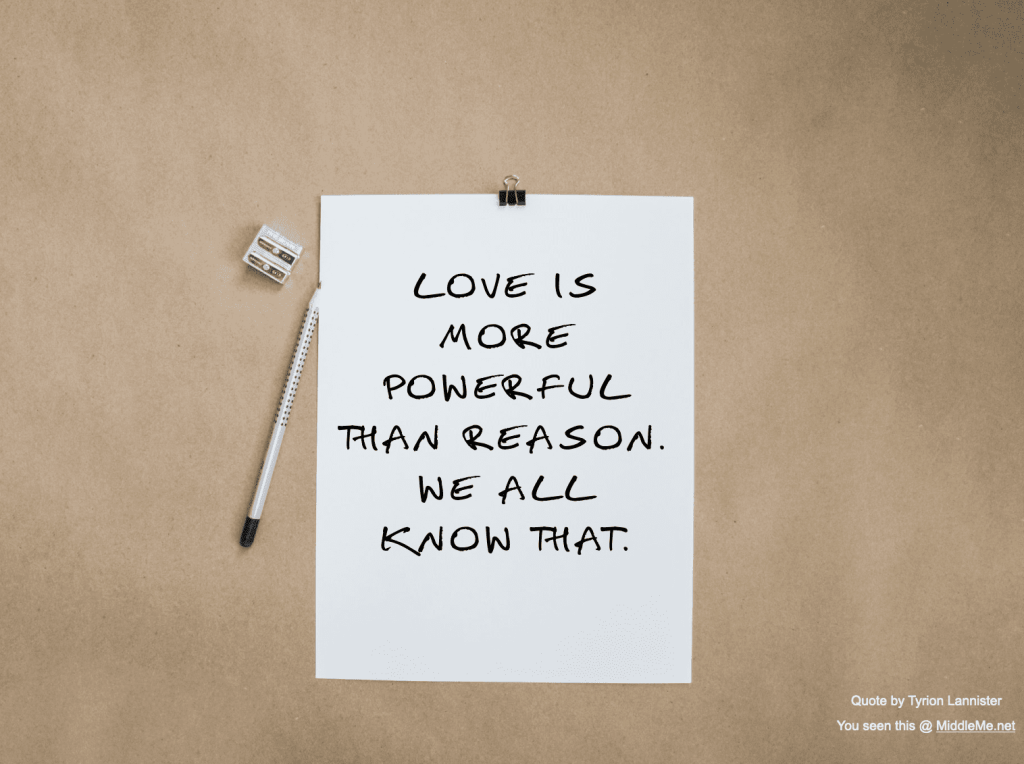 LOVE IS
MORE
POWERFUL
THAN REASON.
WE ALL
KNOW THAT.
Quote by Tyrion Lannister
You seen this @ MiddleMe.net